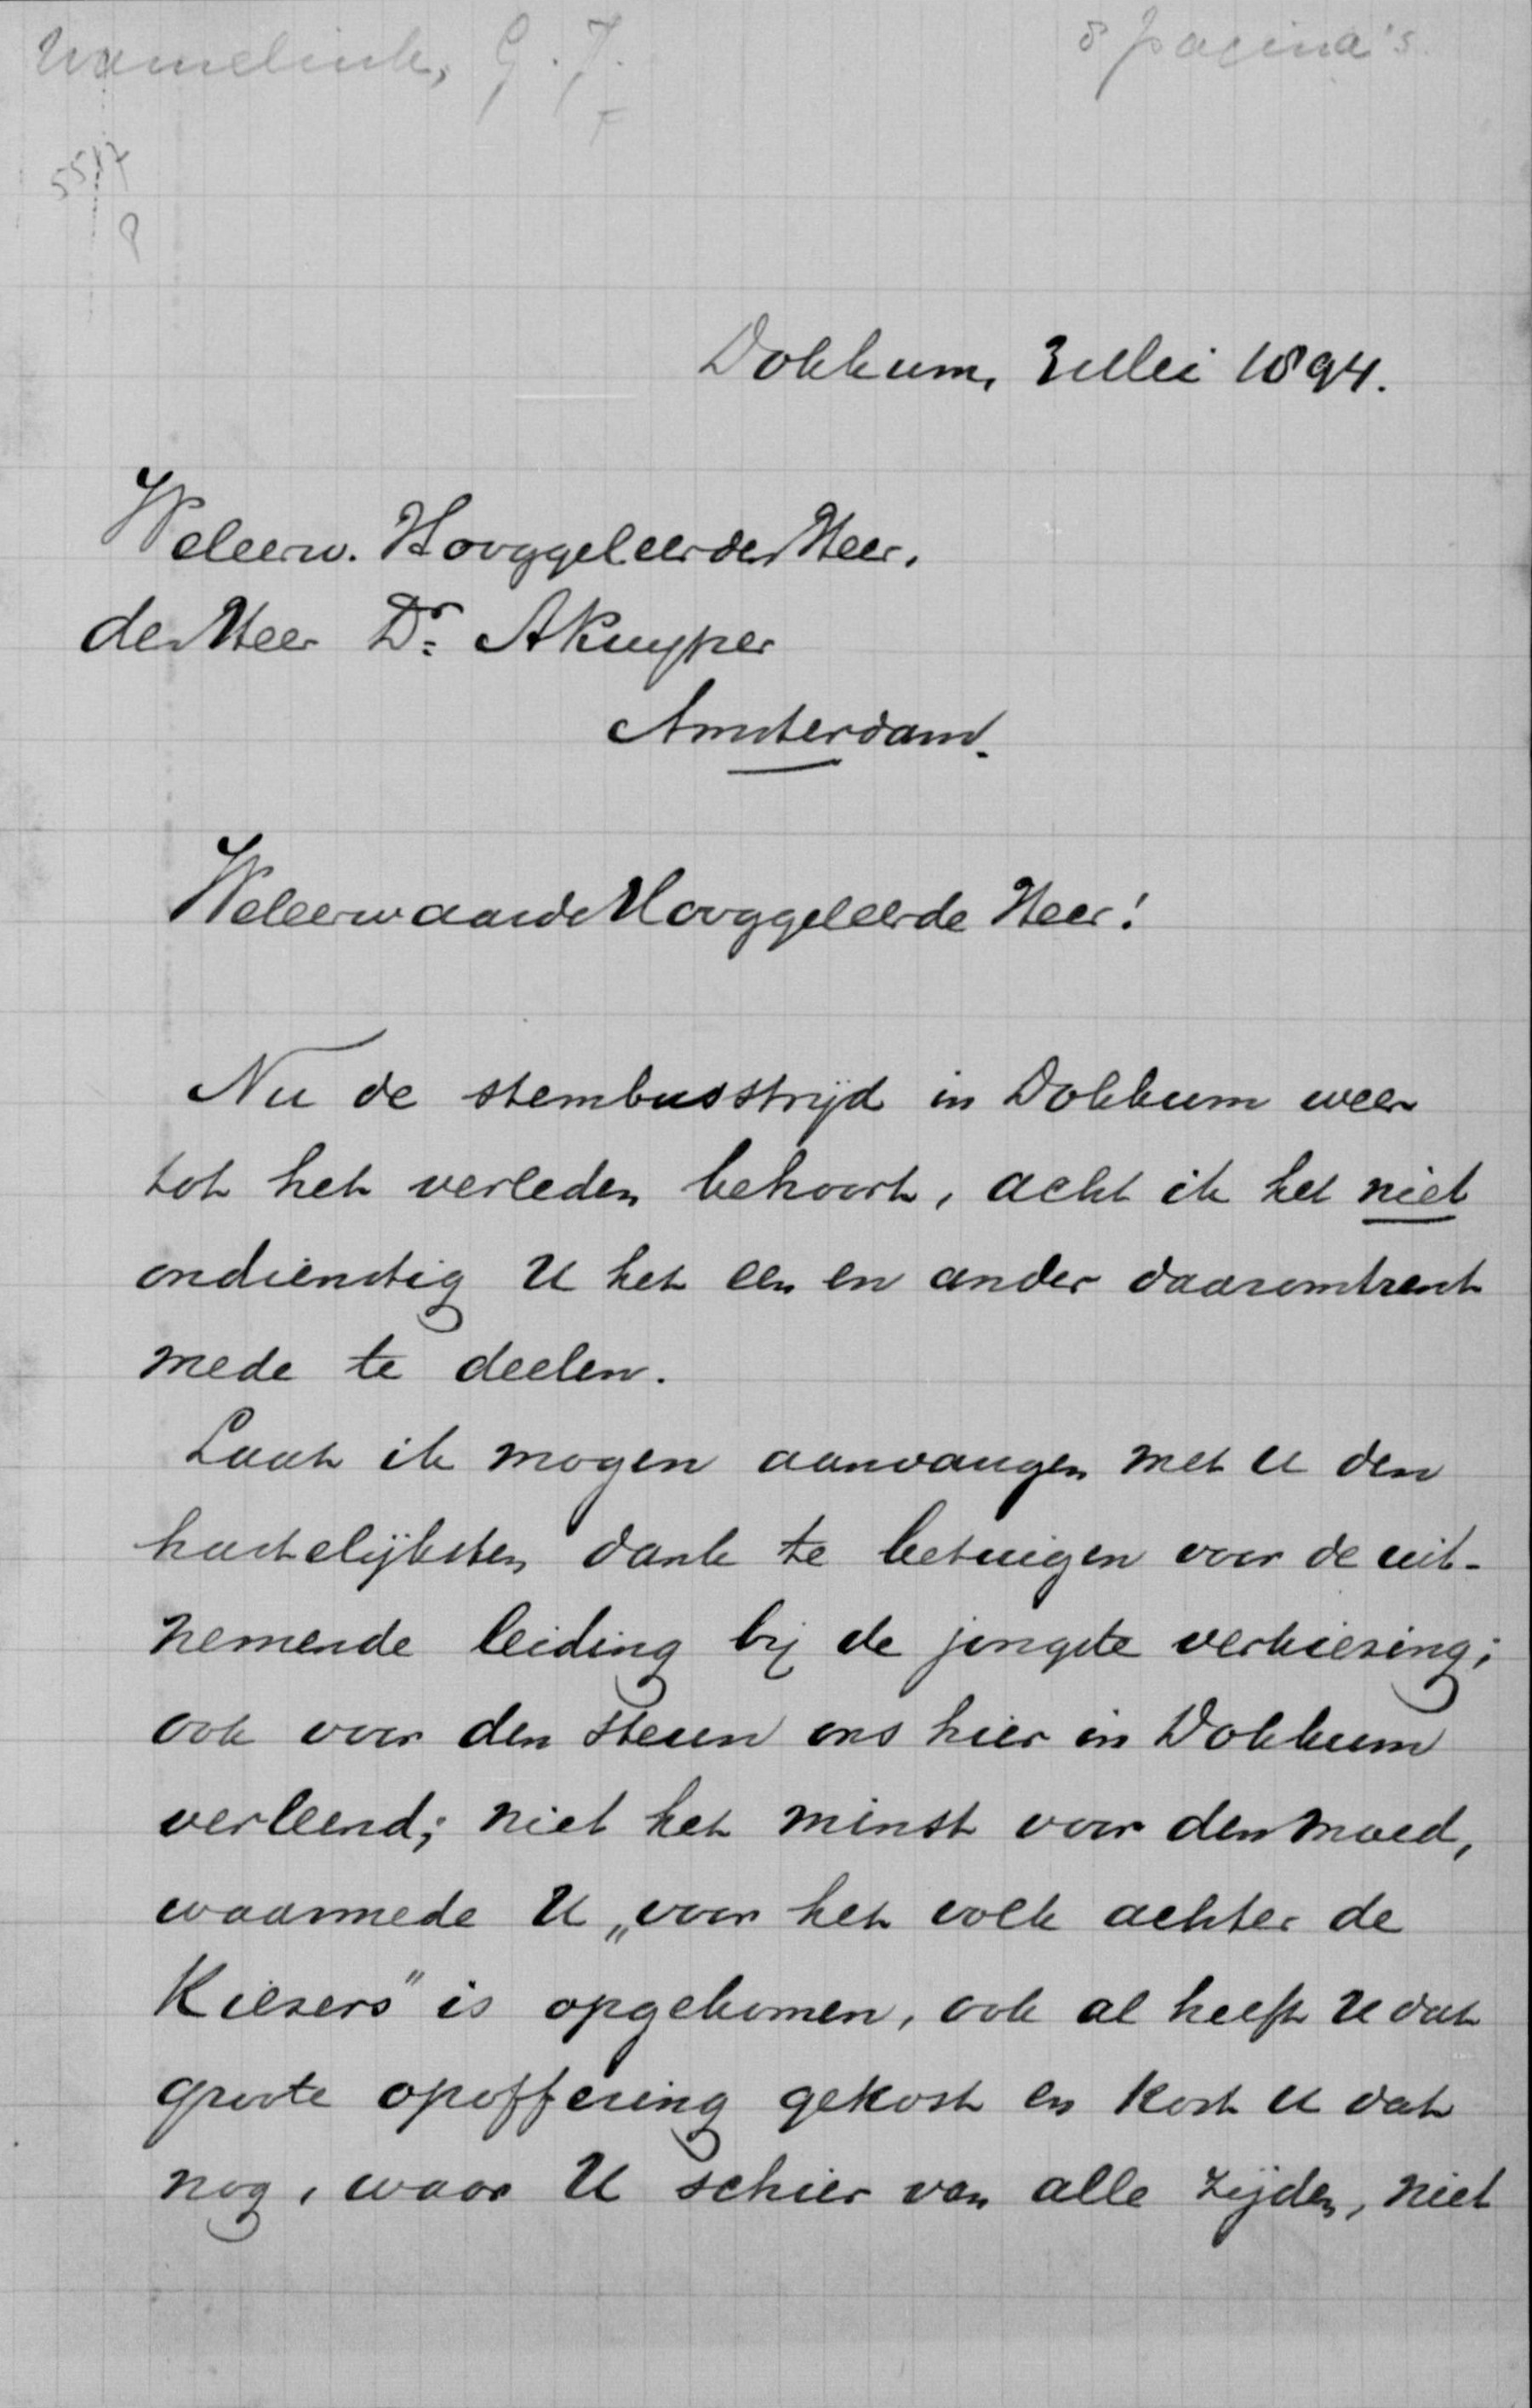 Wamelink, G. J.
8 pagina's.
5517
Dokkum, 3 Mei 1894.
Weleerw. Hooggeleerden Heer,
den Heer Dr. A Kuyper
Amsterdam.
Weleerwaarde Hooggeleerde Heer!
Nu de stembusstrijd in Dokkum weer
tot het verleden behoort, acht ik het niet
ondienstig U het een en ander daaromtrent
mede te deelen.
Laat ik mogen aanvangen met U den
hartelijksten dank te betuigen voor de uit-
nemende leiding bij de jongste verkiezing;
ook voor den steun ons hier in Dokkum
verleend; niet het minst voor den moed,
waarmede U „voor het volk achter de
Kiezers" is opgekomen, ook al heeft U dat
groote opoffering gekost en kost U dat
nog, waar U schier van alle zijden, niet